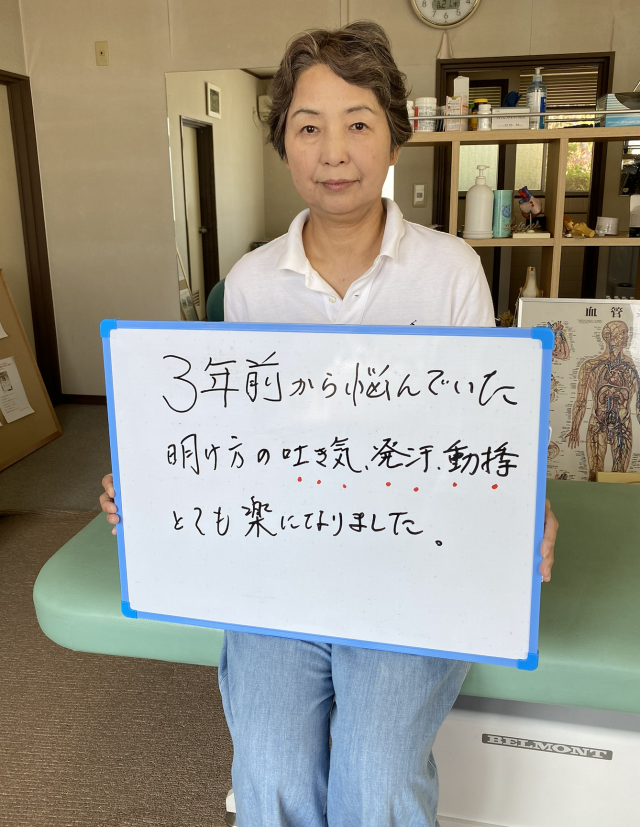 血管
3年前から悩んでいた
明け方の吐き気、発汗、動悸
とても楽になりました。
BELMONT